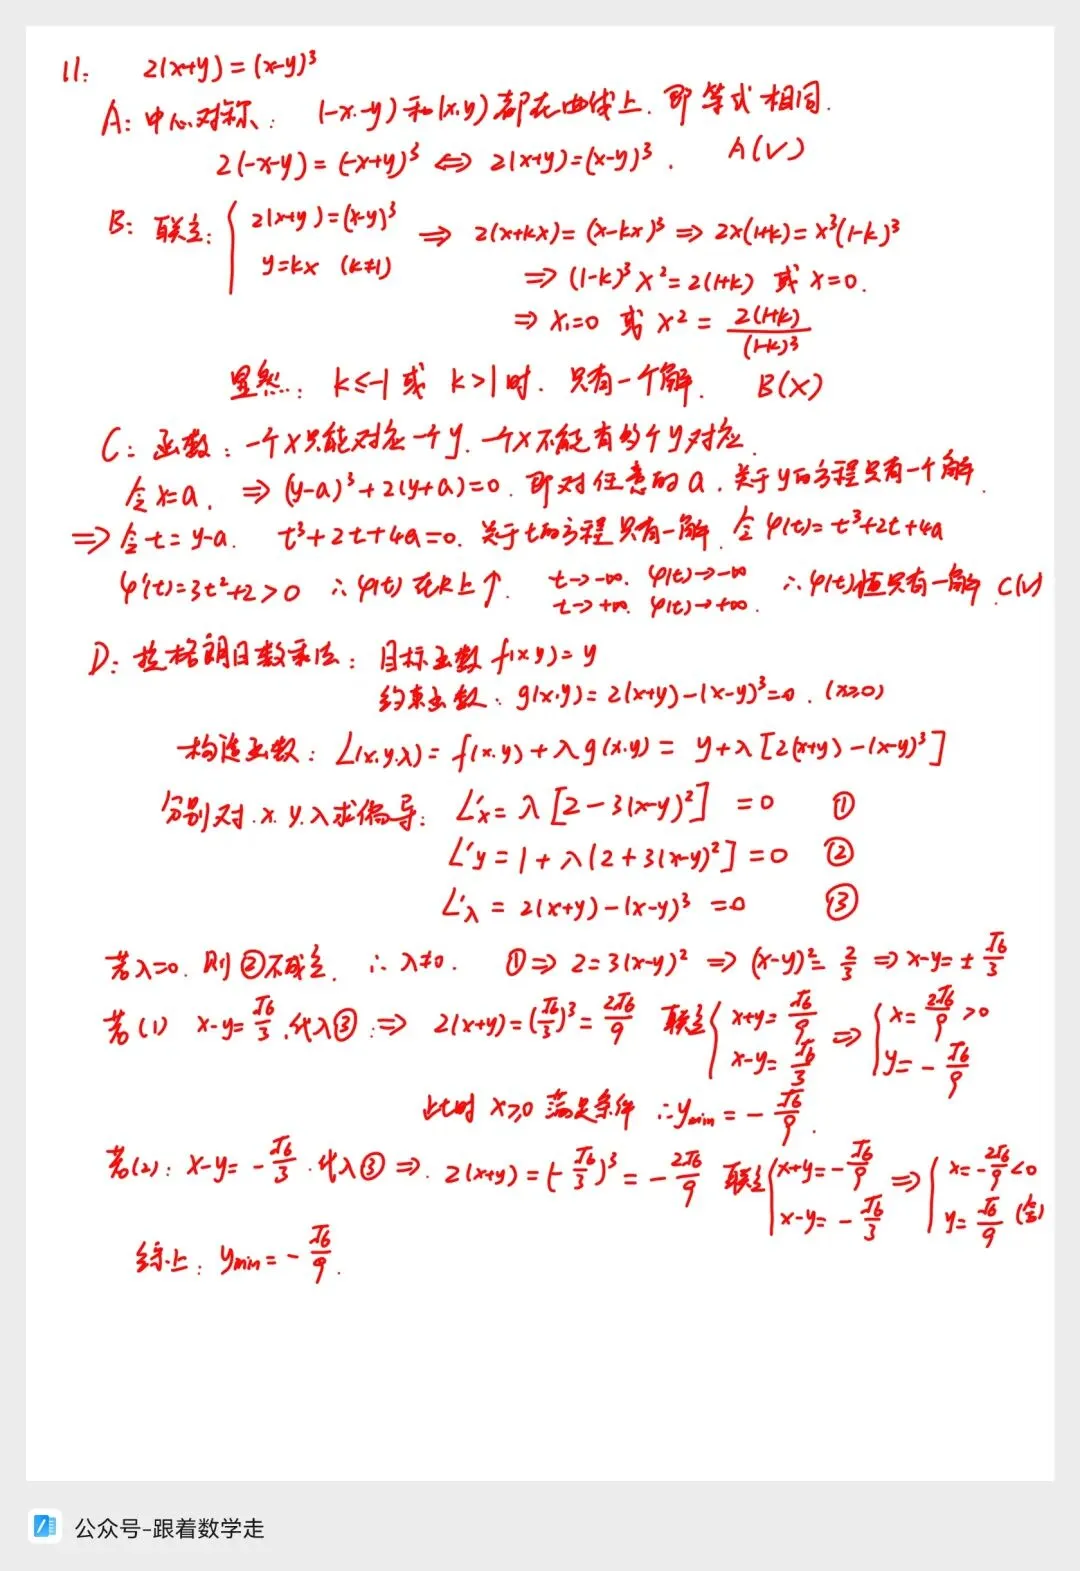 11. 2(x+y)=(x-y)³
A: 中心对称: (-x.-y)和(x.y)都在曲线上. 即等式相同.
2(-x-y)=(-x+y)³ ⇔ 2(x+y)=(x-y)³. A(√)
B: 联立: { 2(x+y)=(x-y)³ ⇒ 2(x+kx)=(x-kx)³ ⇒ 2x(1+k)=x³(1-k)³
y=kx (k≠1) ⇒ (1-k)³x²=2(1+k) 或 x=0.
⇒ x₁=0 或 x²= 2(1+k)/(1-k)³
显然: k≤-1 或 k>1时. 只有一个解. B(×)
C: 函数: 一个x只能对应一个y. 一个x不能有多个y对应.
令x=a. ⇒ (y-a)³+2(y+a)=0. 即对任意的a. 关于y的方程只有一个解.
⇒ 令t=y-a. t³+2t+4a=0. 关于t的方程只有一解. 令φ(t)=t³+2t+4a
φ'(t)=3t²+2>0 ∴φ(t)在R上↑. t→-∞. φ(t)→-∞ ∴φ(t)恒只有一解. C(√)
t→+∞. φ(t)→+∞.
D: 拉格朗日数乘法: 目标函数 f(x.y)=y
约束函数: g(x.y)=2(x+y)-(x-y)³=0. (x≥0)
构造函数: L(x.y.λ)=f(x.y)+λg(x.y)= y+λ[2(x+y)-(x-y)³]
分别对.x.y.λ求偏导: L'x=λ[2-3(x-y)²] =0 ①
L'y=1+λ[2+3(x-y)²]=0 ②
L'λ=2(x+y)-(x-y)³ =0 ③
若λ=0. 则②不成立. ∴λ≠0. ①⇒ 2=3(x-y)² ⇒ (x-y)²=2/3 ⇒ x-y=±√6/3
若(1) x-y=√6/3.代入③: ⇒ 2(x+y)=(√6/3)³=2√6/9 联立{ x+y=√6/9 ⇒ { x=2√6/9>0
x-y=√6/3 y=-√6/9
此时 x≥0 满足条件 ∴ymin=-√6/9.
若(2): x-y=-√6/3.代入③⇒. 2(x+y)=(-√6/3)³=-2√6/9 联立{ x+y=-√6/9 ⇒ { x=-2√6/9<0
x-y=-√6/3 y=√6/9 (舍)
综上: ymin=-√6/9.
公众号-跟着数学走